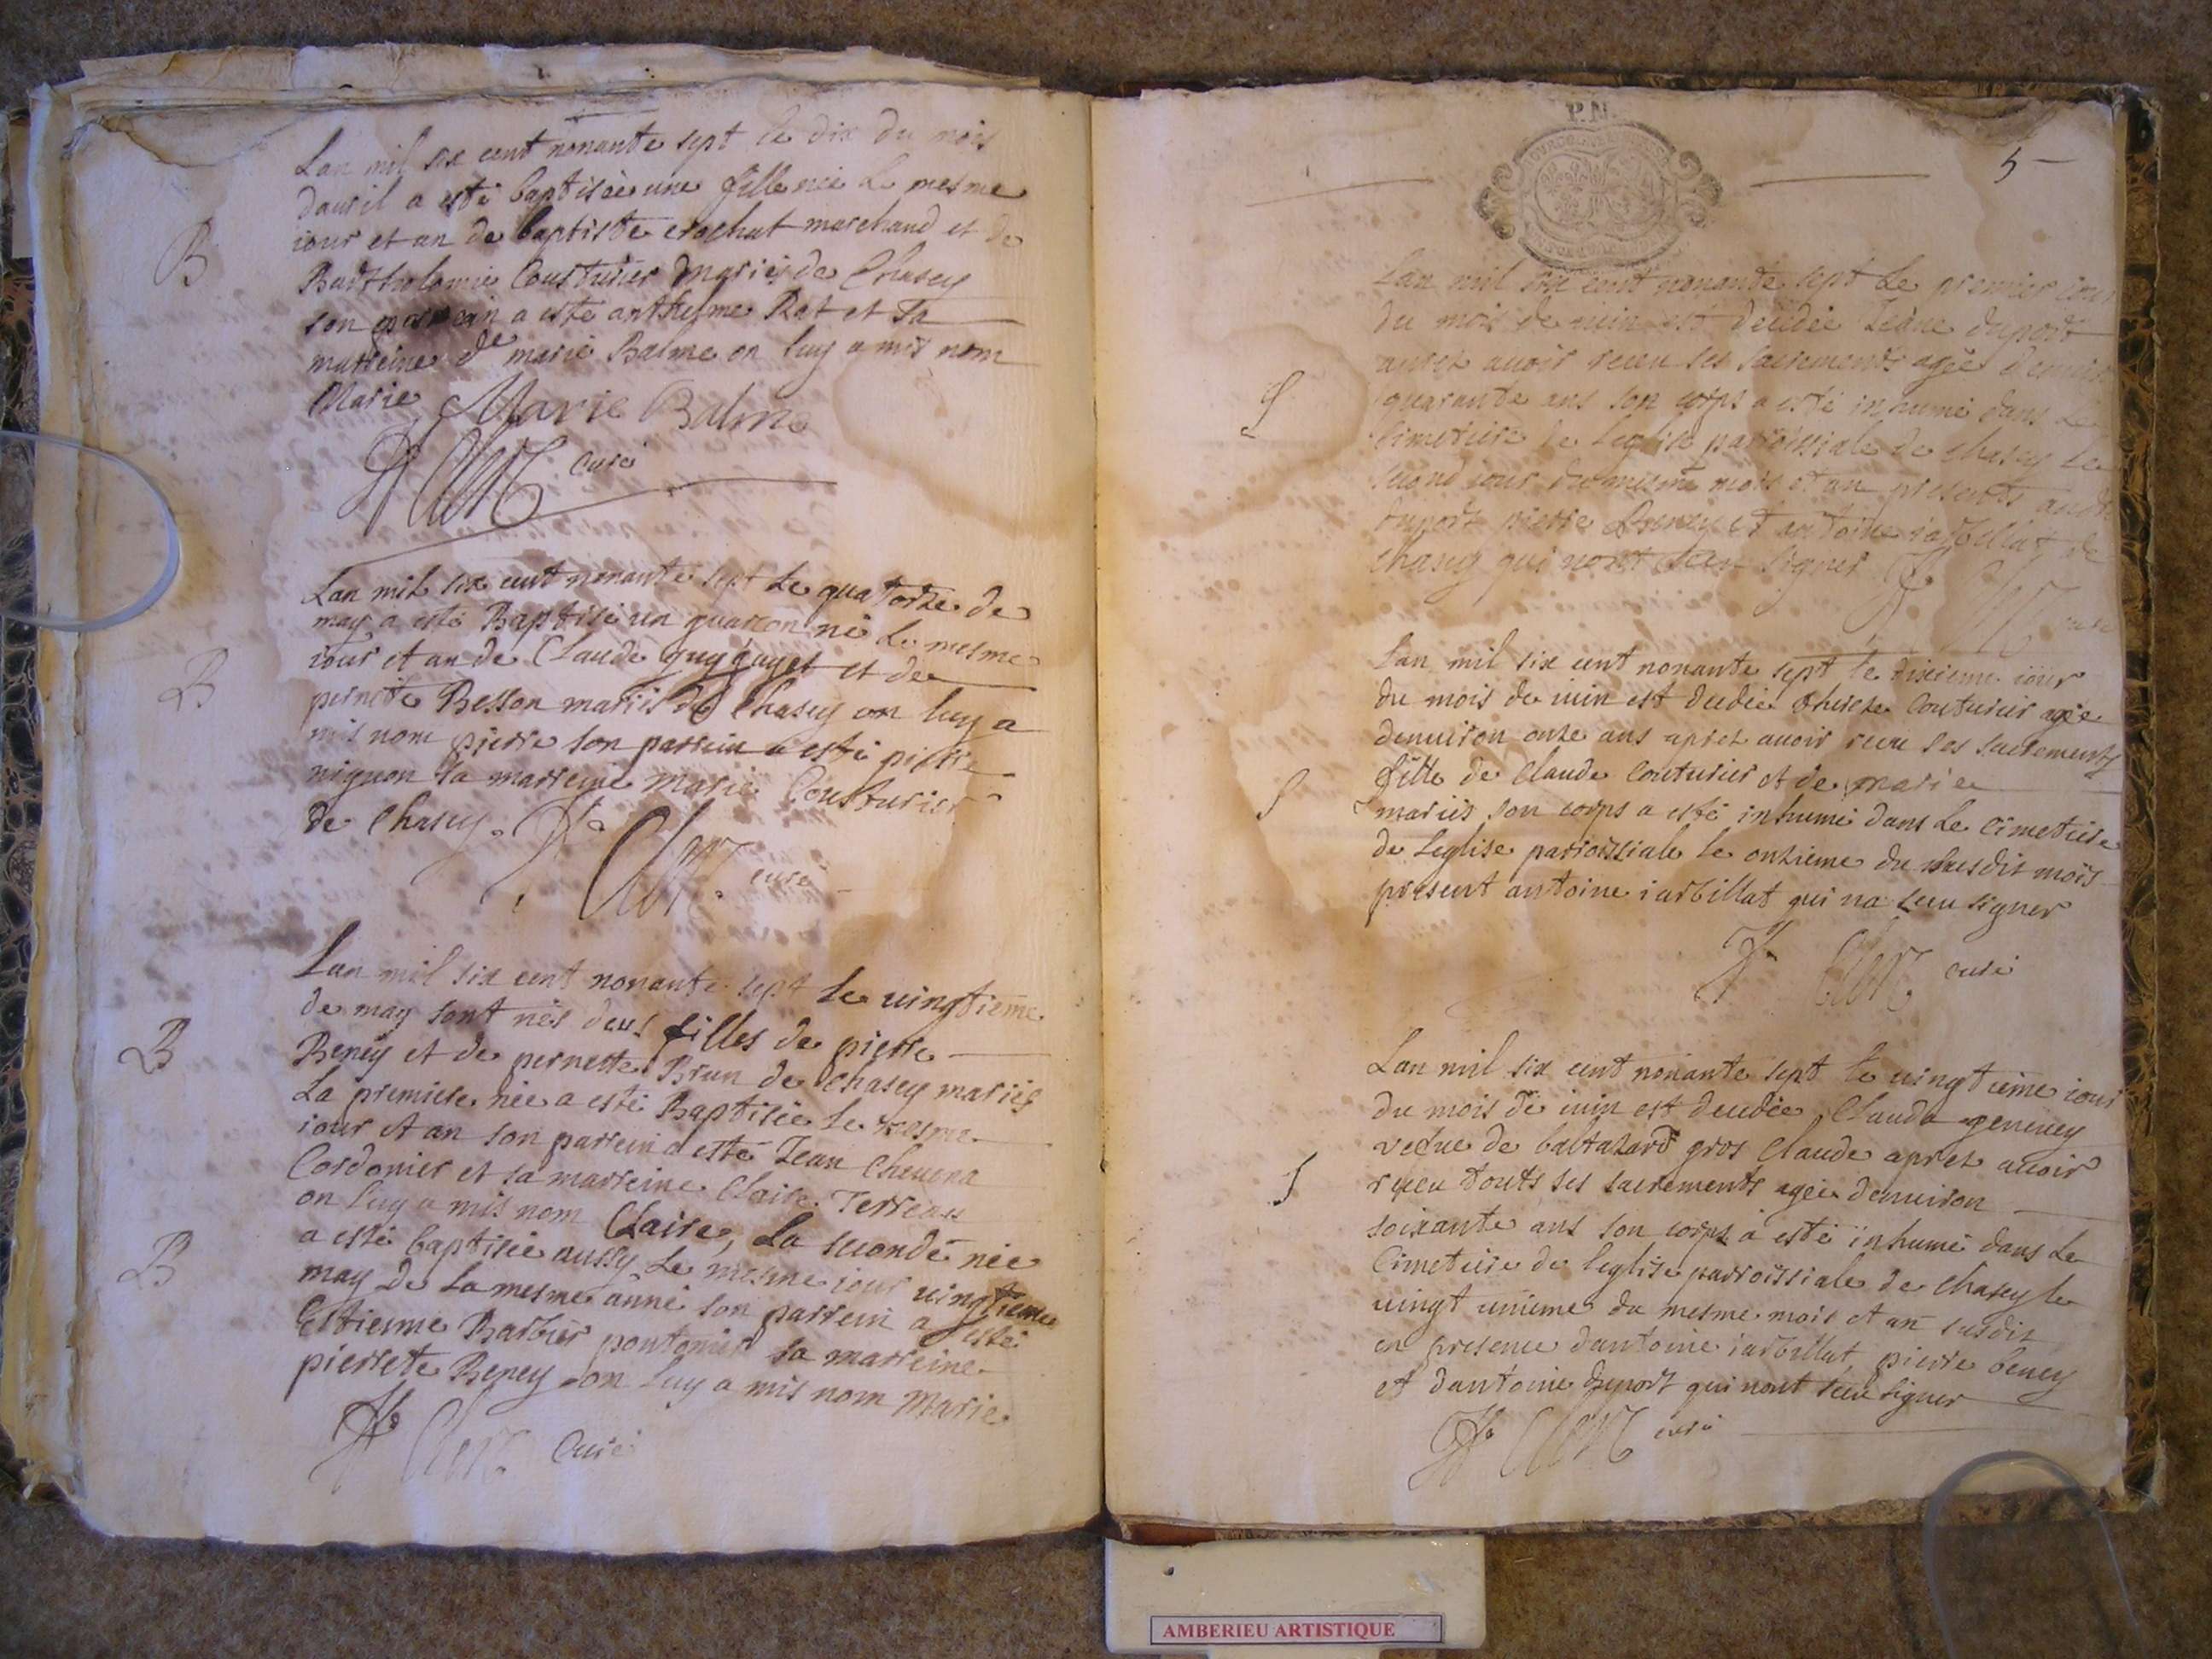 Lan mil six cent nonante sept le dix du mois
dauril a esté baptisée une fille née le mesme
iour et an de baptiste crochat marchand et de
Bartholomie Cousturier mariés de Chasey
son parrein a esté anthelme Rat et sa
marreine de marie Balme on luy a mis nom
Marie Marie Balme
Curé
B
Lan mil six cent nonante sept le quatorze de
may a esté Baptisé un guarcon né le mesme
iour et an de Claude guygayet et de
pernete Besson mariés de Chasey on luy a
mis nom pierre son parrein a esté pierre
niguon sa marreine marie Cousturier
de Chasey.
curé
B
Lan mil six cent nonante sept le uingtieme
de may sont nés deus filles de pierre
Beney et de pernette Brun de Chasey mariés
La premiere née a esté Baptisée le mesme
iour et an son parrein a esté Jean Cheuena
Cordonier et sa marreine Claire Terreau
on luy a mis nom Claire, La seconde née
a esté baptisée aussy le mesme iour uingtieme
may de la mesme anné son parrein a esté
Estienne Barbier pontonier sa marreine
pierrete Beney on luy a mis nom Marie
Curé
B
B
P.N.
5
Lan mil six cent nonante sept le premier iour
du mois de iuin est décédée Jeane duport
apres auoir receu ses sacrements agée denuiron
quarante ans son corps a esté inhumé dans le
Cimetiere de leglise parroissiale de chasey le
second iour du mesme mois et an presents
duport pierre et antoine iarbillat de
chasey qui nont seeu signer
S
Lan mil six cent nonante sept le dixieme iour
du mois de iuin est decedée Couturier agée
denuiron onze ans apres auoir receu ses sacrements
fille de Claude Couturier et de marie
mariés son corps a esté inhumé dans le cimetiere
de leglise parroissiale le onzieme du susdit mois
present antoine iarbillat qui na seeu signer
curé
S
Lan mil six cent nonante sept le uingtieme iour
du mois de iuin est decedée Claude geneuey
vefue de baltazard gros Claude apres auoir
receu touts ses sacrements agée denuiron
soixante ans son corps a esté inhumé dans le
Cimetiere de leglise parroissiale de Chasey le
uingt unieme du mesme mois et an susdit
en presence dantoine iarbillat pierre beney
et dantoine duport qui nont seeu signer
curé
S
AMBERIEU ARTISTIQUE